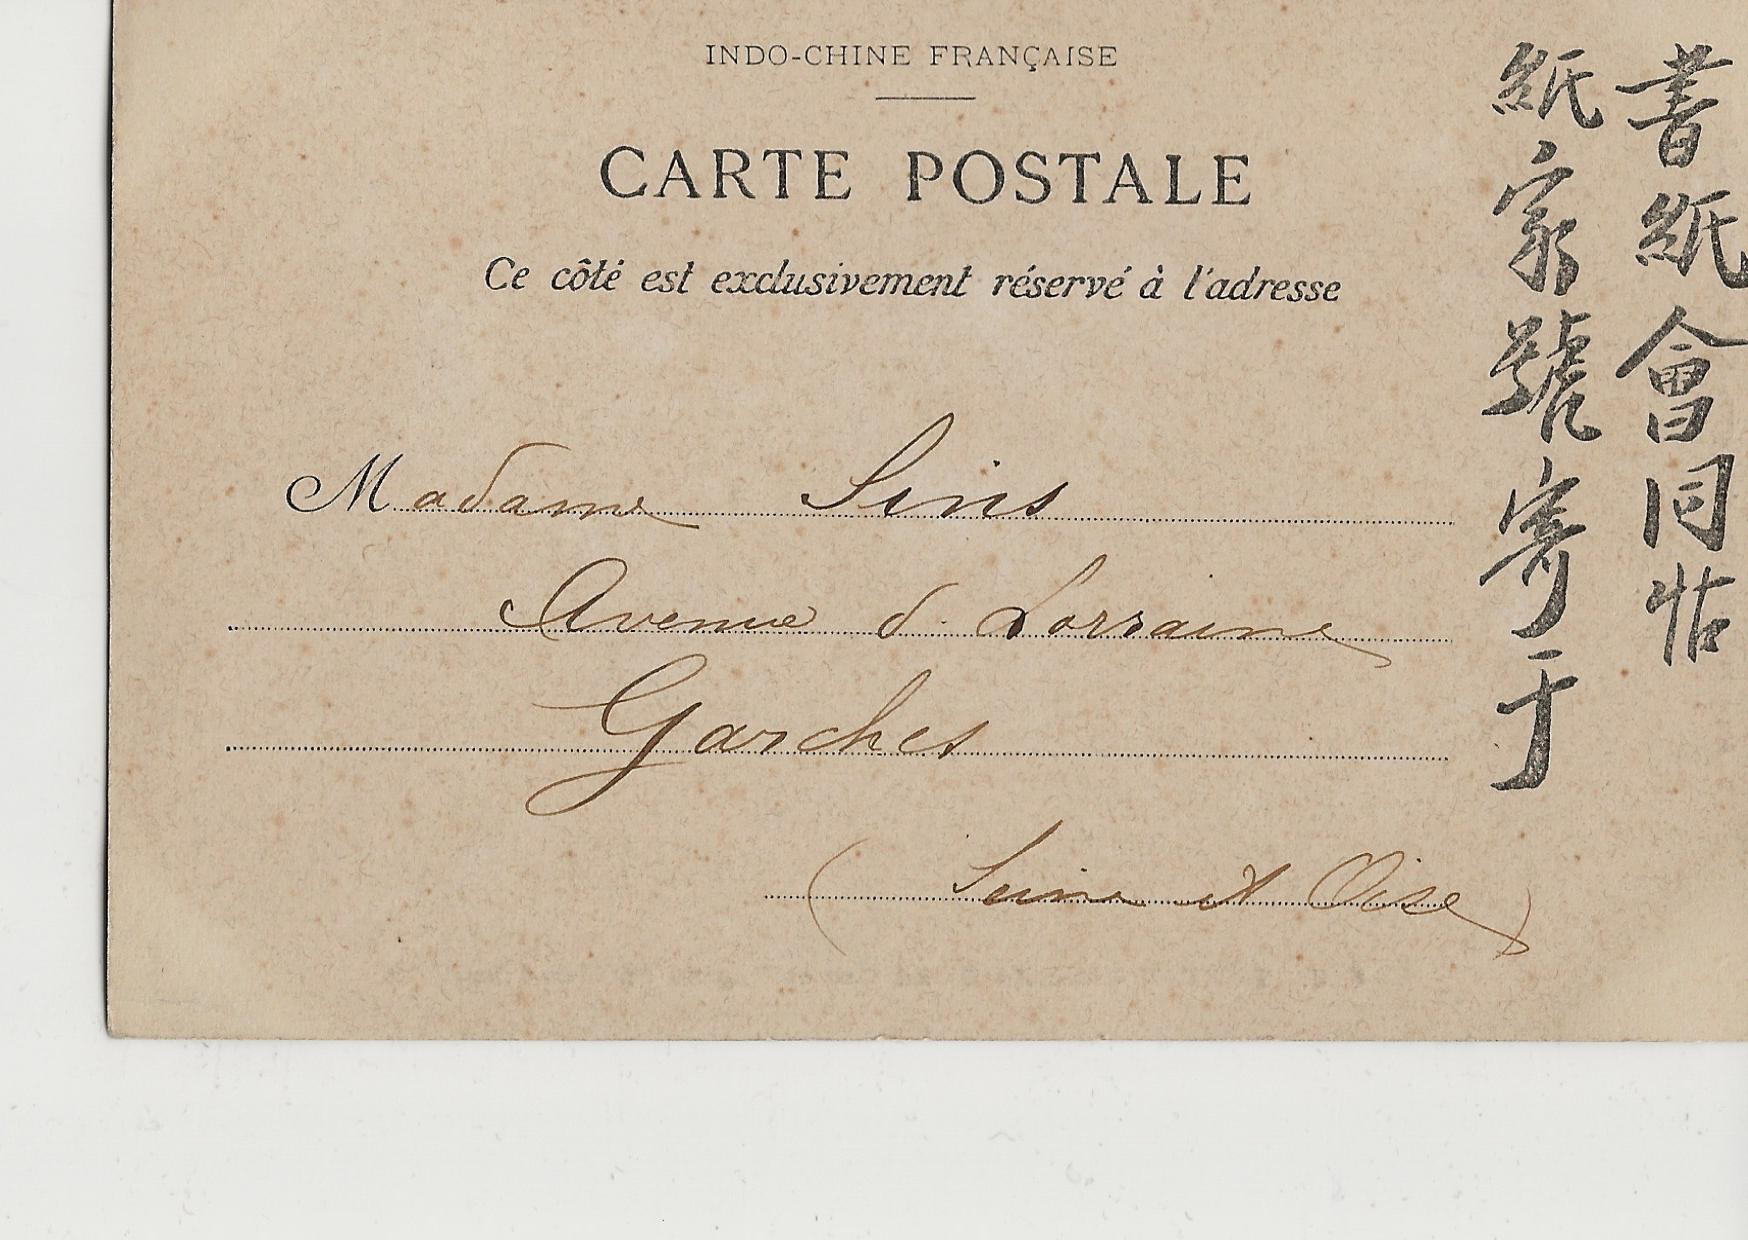 INDO-CHINE FRANÇAISE
CARTE POSTALE
Ce côté est exclusivement réservé à l'adresse
Madame Sins
Avenue d. Lorraine
Garches
(Seine et Oise)
書紙會同帖
紙家號寄于